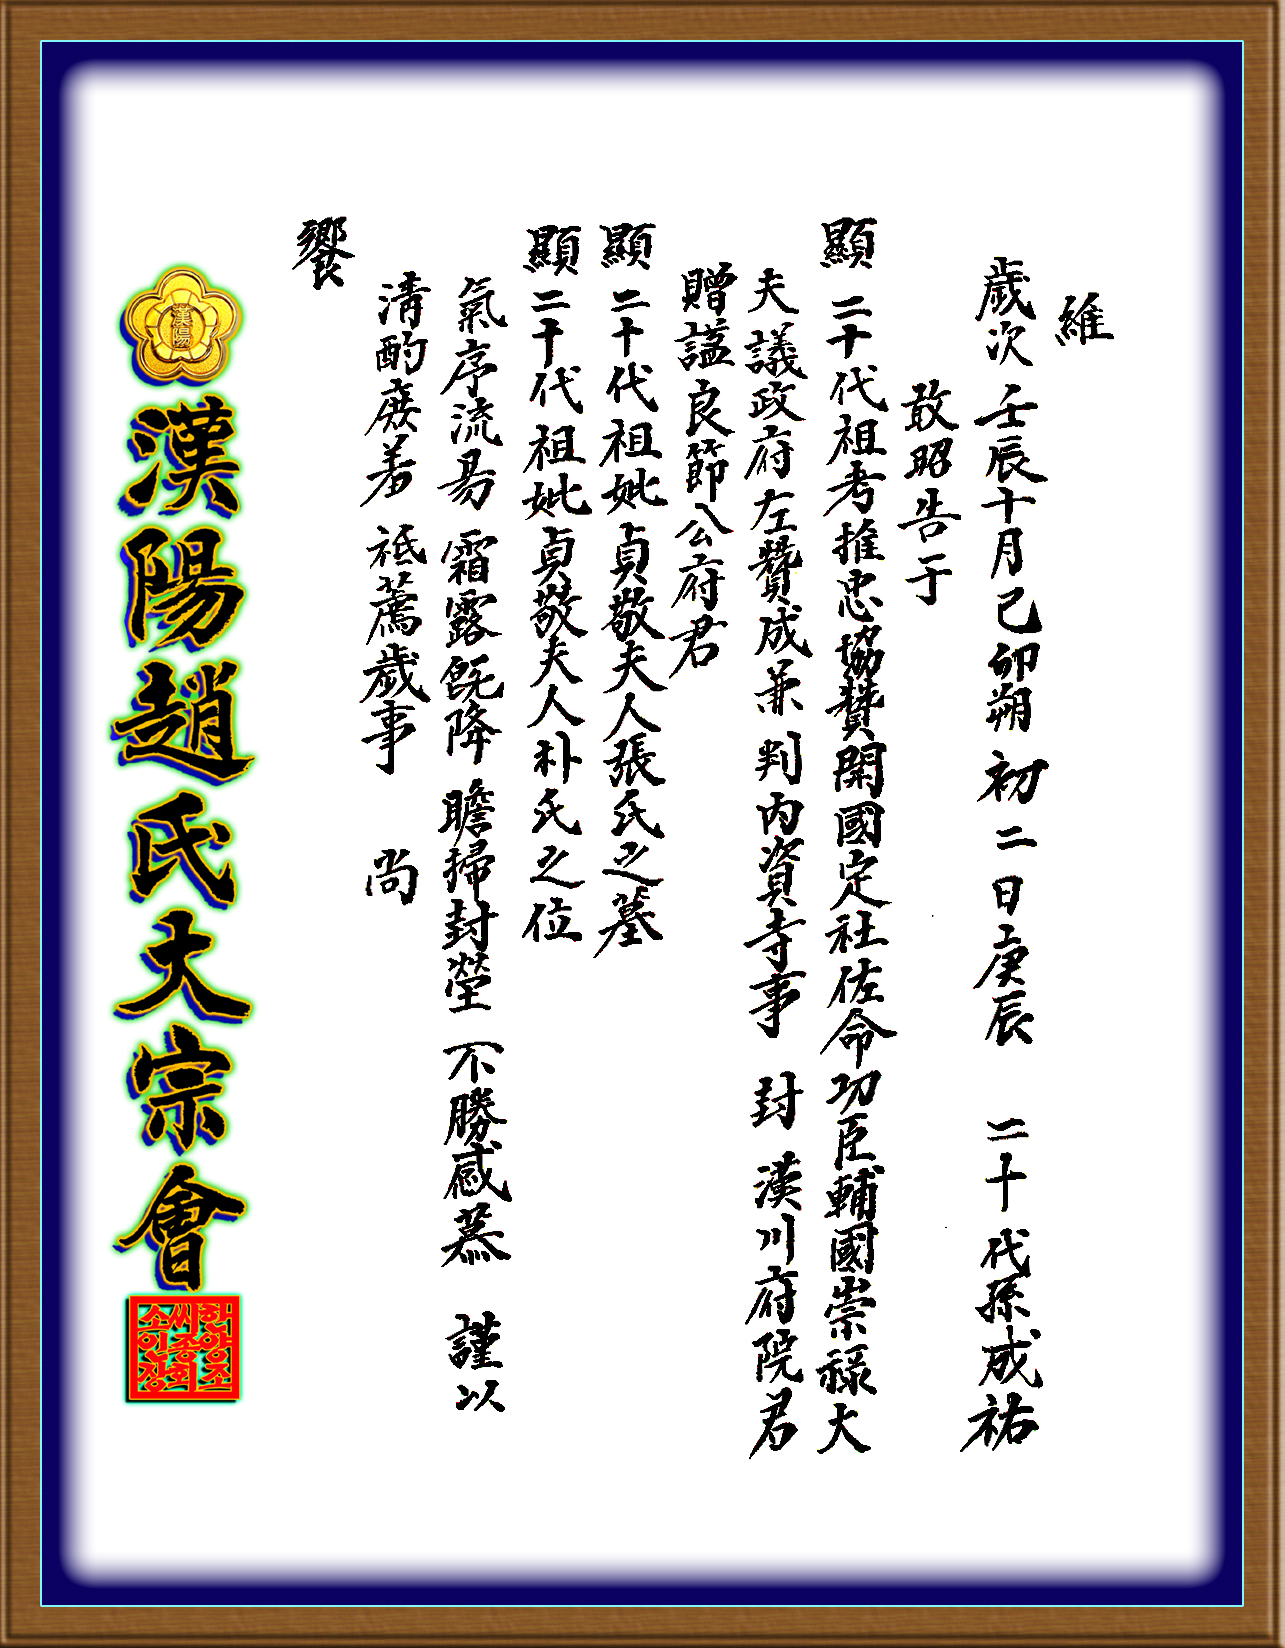 維
歲次 壬辰十月己卯朔 初二日庚辰 二十代孫成祐
敢昭告于
顯 二十代祖考推忠協贊開國定社佐命功臣輔國崇祿大
夫議政府左贊成兼判內資寺事 封 漢川府院君
贈諡良節公府君
顯 二十代祖妣貞敬夫人張氏之墓
顯 二十代祖妣貞敬夫人朴氏之位
氣序流易 霜露旣降 瞻掃封塋 不勝感慕 謹以
淸酌庶羞 祗薦歲事 尚
饗
漢陽
漢陽趙氏大宗會
한양조
씨종회
소인장